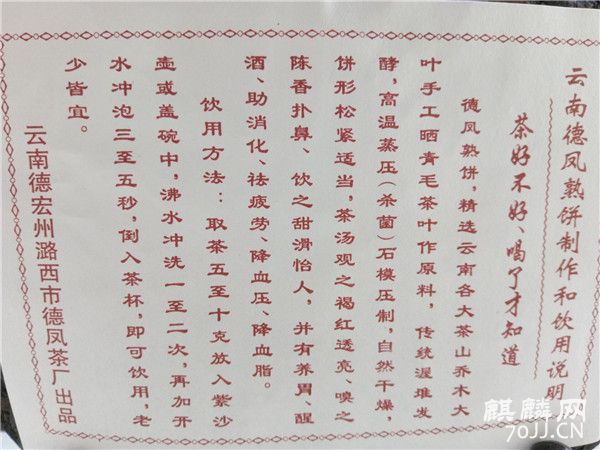 云南德凤熟饼制作和饮用说明
茶好不好、喝了才知道
德凤熟饼，精选云南各大茶山乔木大
叶手工晒青毛茶叶作原料，传统渥堆发
酵，高温蒸压(杀菌)石模压制，自然干燥，
饼形松紧适当，茶汤观之褐红透亮、嗅之
陈香扑鼻、饮之甜滑怡人，并有养胃、醒
酒、助消化、祛疲劳、降血压、降血脂。
饮用方法：取茶五至十克放入紫沙
壶或盖碗中，沸水冲洗一至二次，再加开
水冲泡三至五秒，倒入茶杯，即可饮用，老
少皆宜。
云南德宏州潞西市德凤茶厂出品
麒麟网
70JJ.CN